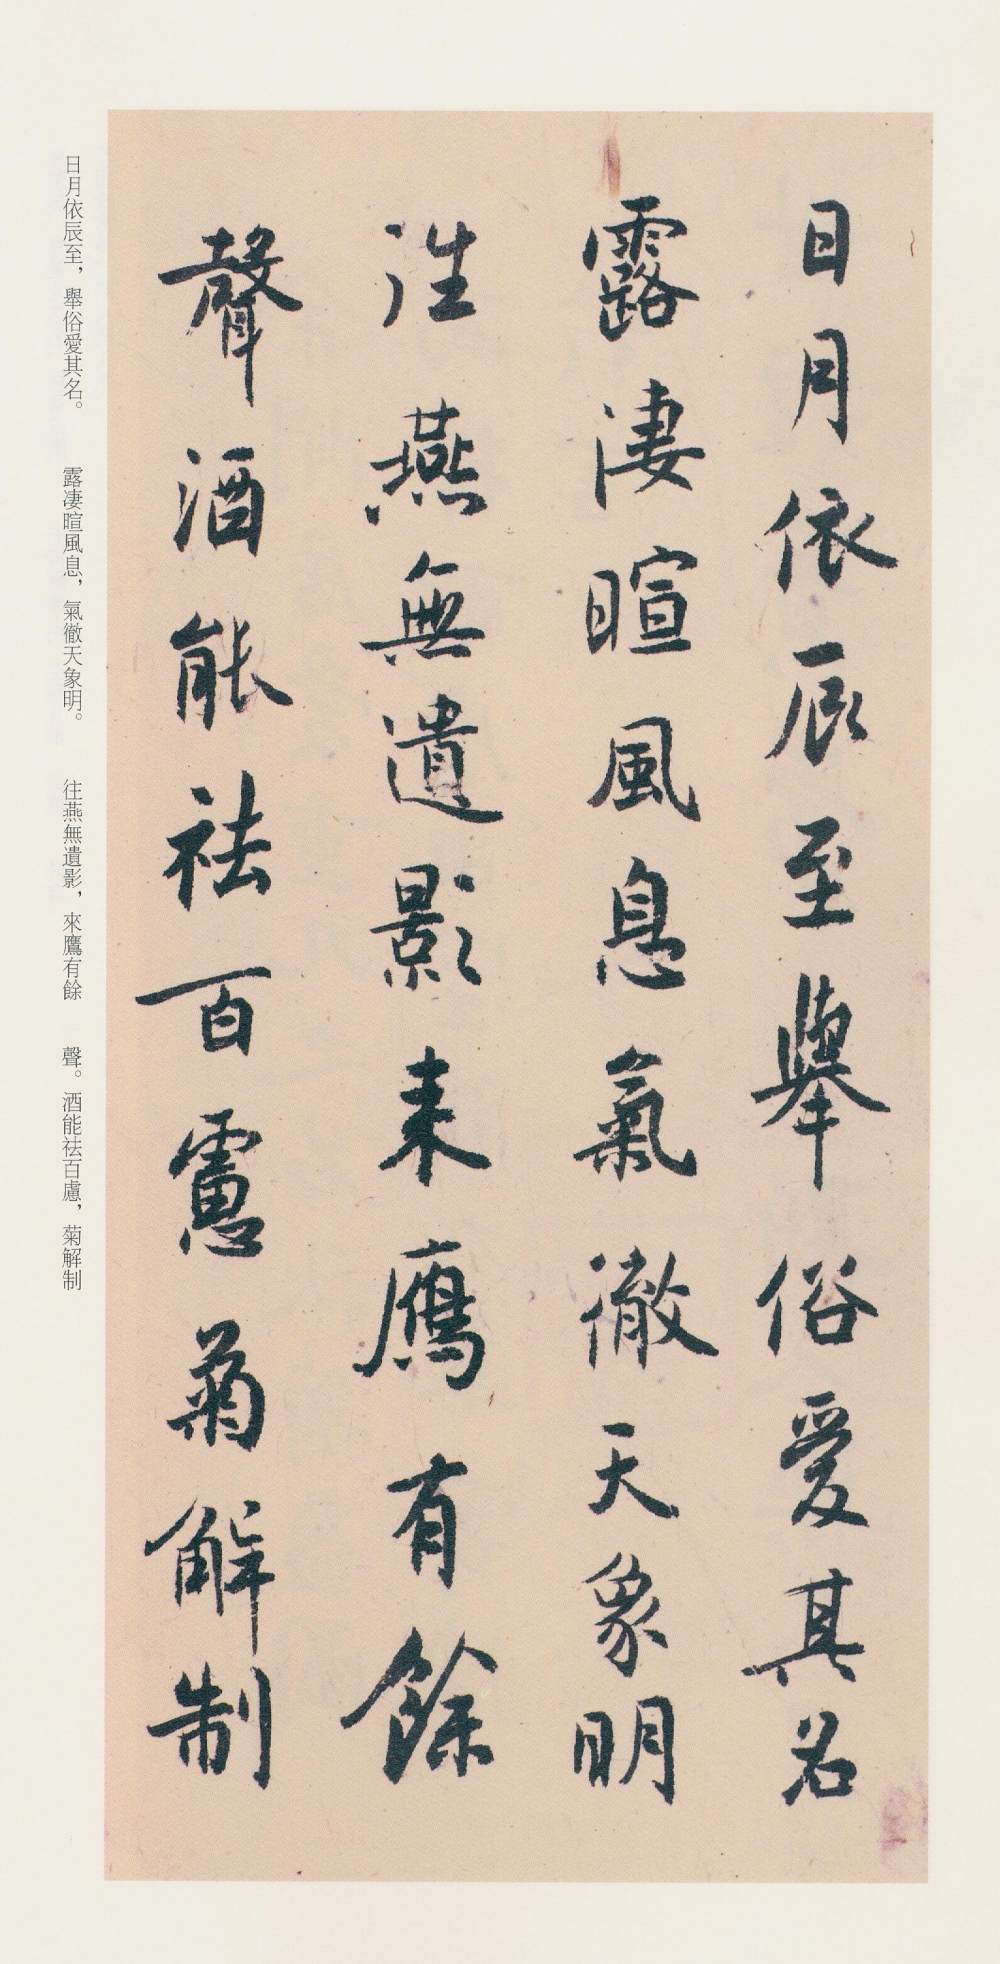 日月依辰至舉俗愛其名
露淒暄風息氣徹天象明
往燕無遺影来鴈有餘
聲酒能祛百慮菊解制
日月依辰至，舉俗愛其名。　露凄暄風息，氣徹天象明。　往燕無遺影，來鷹有餘　聲。酒能祛百慮，菊解制